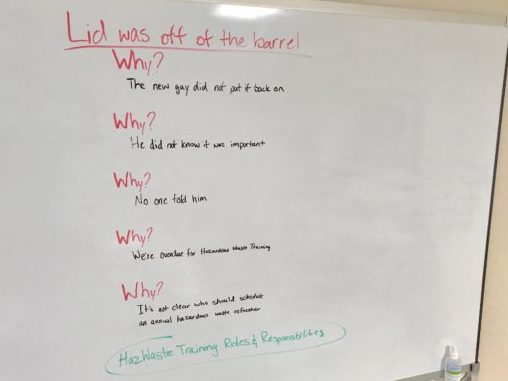 Lid was off of the barrel
Why?
The new guy did not put it back on
Why?
He did not know it was important
Why?
No one told him
Why?
We're overdue for Hazardous Waste Training
Why?
It's not clear who should schedule
an annual hazardous waste refresher
HazWaste Training Roles & Responsibilities